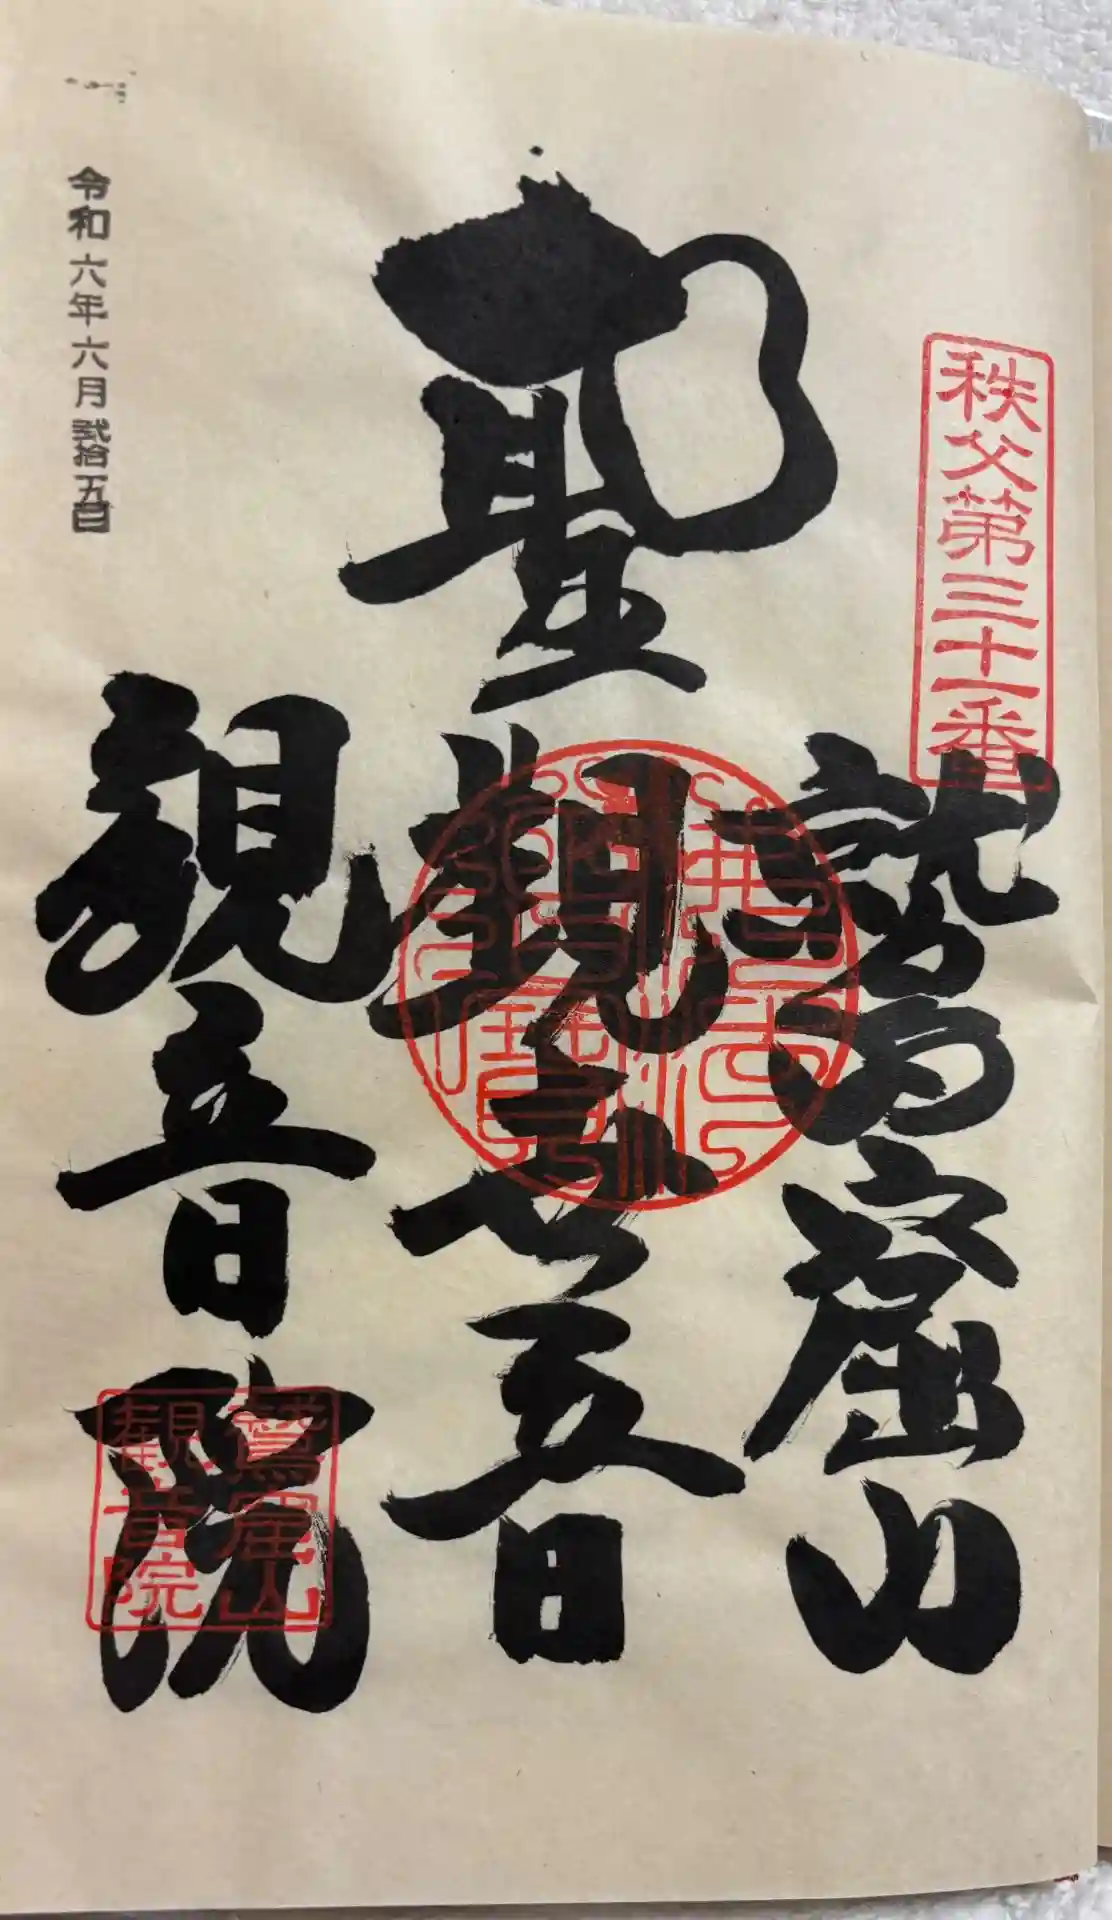 秩父第三十一番
鷲窟山
聖観世音
観音院
佛法僧寳
鷲窟山
観音院
令和六年六月弐拾五日